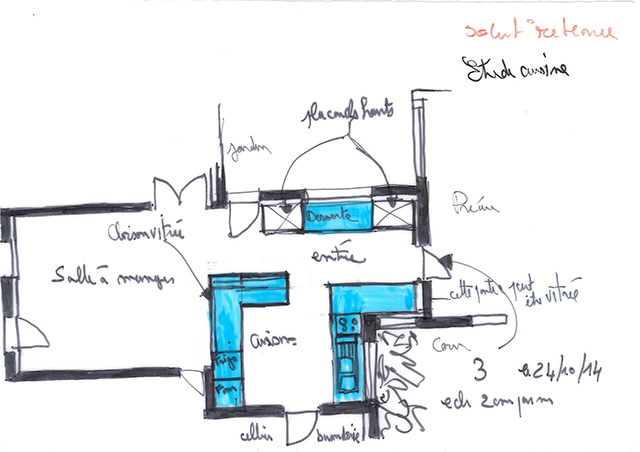 solut° retenue
Etude cuisine
placards hauts
jardin
Préau
Cloison vitrée
Desserte
entrée
Salle à manger
cette porte peut
être vitrée
cuisine
Cour
Frigo
Four
3 le 24/10/14
ech 2cm par m
cellier
buanderie